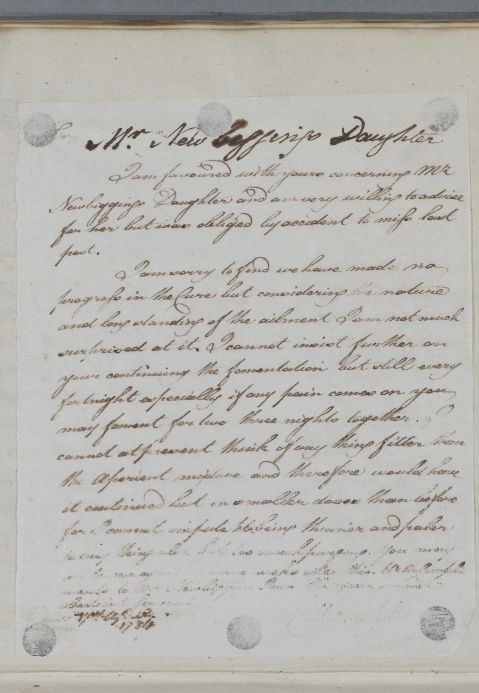 Mr. Newbiggings Daughter
I am favoured with yours concerning Mr
Newbiggings Daughter and am very willing to advise
for her but was obliged by accident to miss last
post.
I am sorry to find we have made no
progress in the Cure but considering the nature
and long standing of the ailment I am not much
surprised at it. I cannot insist further on
your continuing the fomentation but still every
fortnight especially if any pain comes on you
may foment for two three nights together. I
cannot at present think of any thing fitter than
the Aperient mixture and therefore would have
it continued but in smaller doses than before
for I cannot impute her being thinner and paler
to any thing else but too much purging. You may